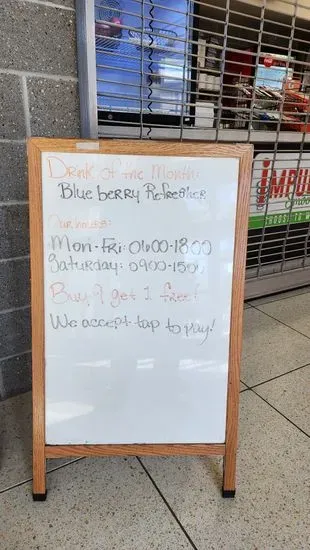 Drink of the Month:
Blueberry Refresher
Our hours:
Mon-Fri: 0600-1800
Saturday: 0900-1500
Buy 9 get 1 free!
We accept tap to pay!
IMPU
CHOOSE TO